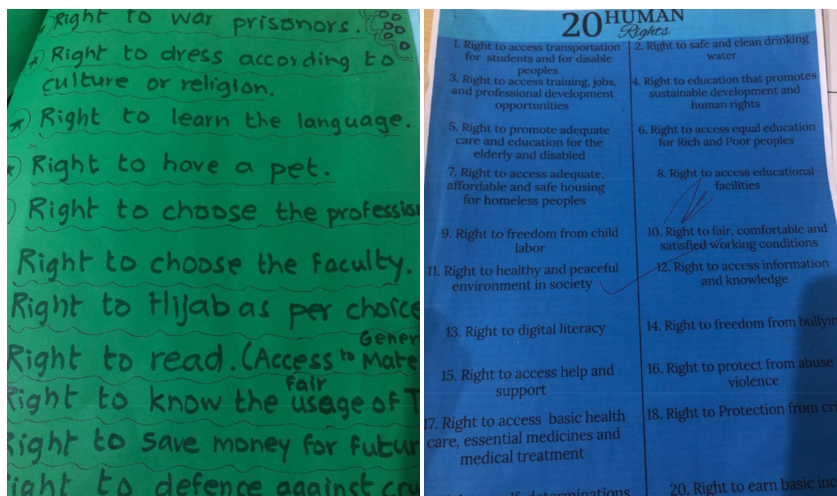 Right to war prisonors.
Right to dress according to
culture or religion.
Right to learn the language.
Right to have a pet.
Right to choose the profession
Right to choose the Faculty.
Right to Hijab as per choice
Gener
Right to read. (Access to Mate
Fair
Right to know the usage of T
Right to save money for futur
ight to defence against cru
20 HUMAN
Rights
1. Right to access transportation
for students and for disable
peoples
2. Right to safe and clean drinking
water
3. Right to access training, jobs,
and professional development
opportunities
4. Right to education that promotes
sustainable development and
human rights
5. Right to promote adequate
care and education for the
elderly and disabled
6. Right to access equal education
for Rich and Poor peoples
7. Right to access adequate,
affordable and safe housing
for homeless peoples
8. Right to access educational
facilities
9. Right to freedom from child
labor
10. Right to fair, comfortable and
satisfied working conditions
11. Right to healthy and peaceful
environment in society
12. Right to access information
and knowledge
13. Right to digital literacy
14. Right to freedom from bullyin
15. Right to access help and
support
16. Right to protect from abuse
violence
17. Right to access basic health
care, essential medicines and
medical treatment
18. Right to Protection from cri
determinations
20. Right to earn basic inc